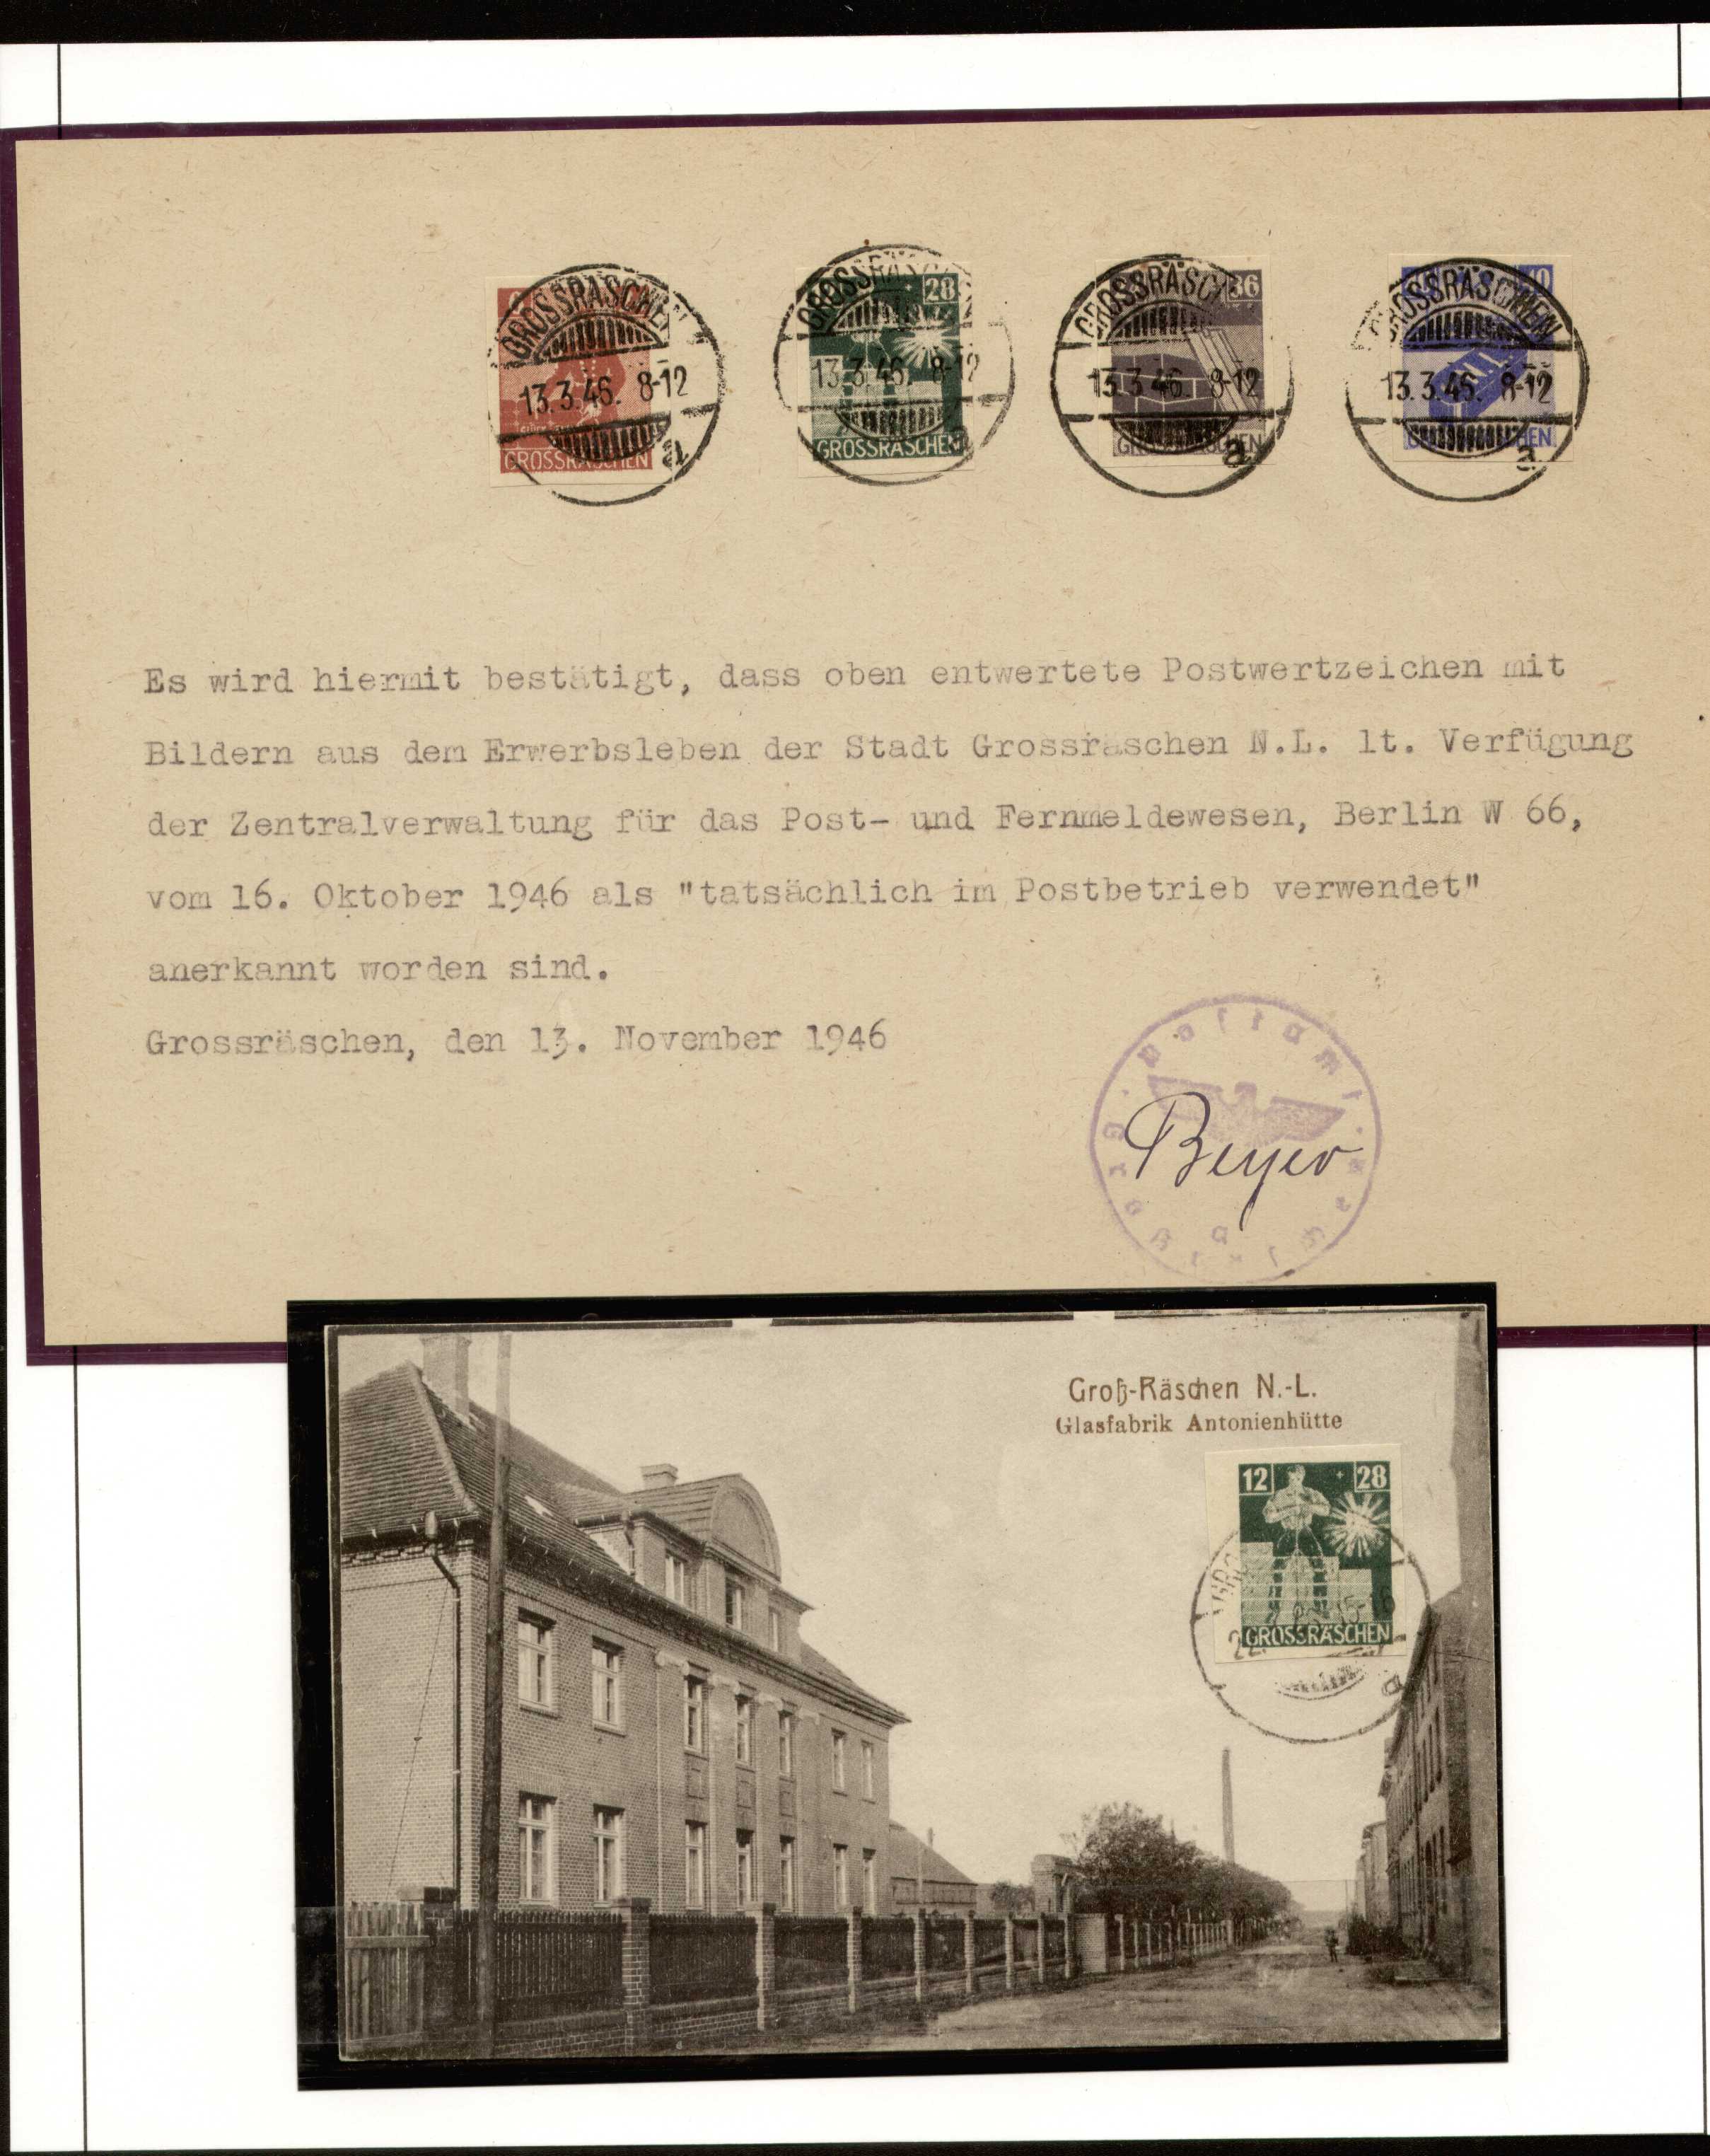 GROSSRÄSCHEN
13.3.46. 8-12
a
GROSSRÄSCHEN
GROSSRÄSCHEN
28
13.3.46. 8-12
GROSSRÄSCHEN
GROSSRÄSCHEN
36
13.3.46. 8-12
a
GROSSRÄSCHEN
GROSSRÄSCHEN
40
13.3.46. 8-12
a
Es wird hiermit bestätigt, dass oben entwertete Postwertzeichen mit
Bildern aus dem Erwerbsleben der Stadt Grossräschen N.L. lt. Verfügung
der Zentralverwaltung für das Post- und Fernmeldewesen, Berlin W 66,
vom 16. Oktober 1946 als "tatsächlich im Postbetrieb verwendet"
anerkannt worden sind.
Grossräschen, den 13. November 1946
Postamt
Beyer
Groß-Räschen N.-L.
Glasfabrik Antonienhütte
12 28
GROSSRÄSCHEN
a